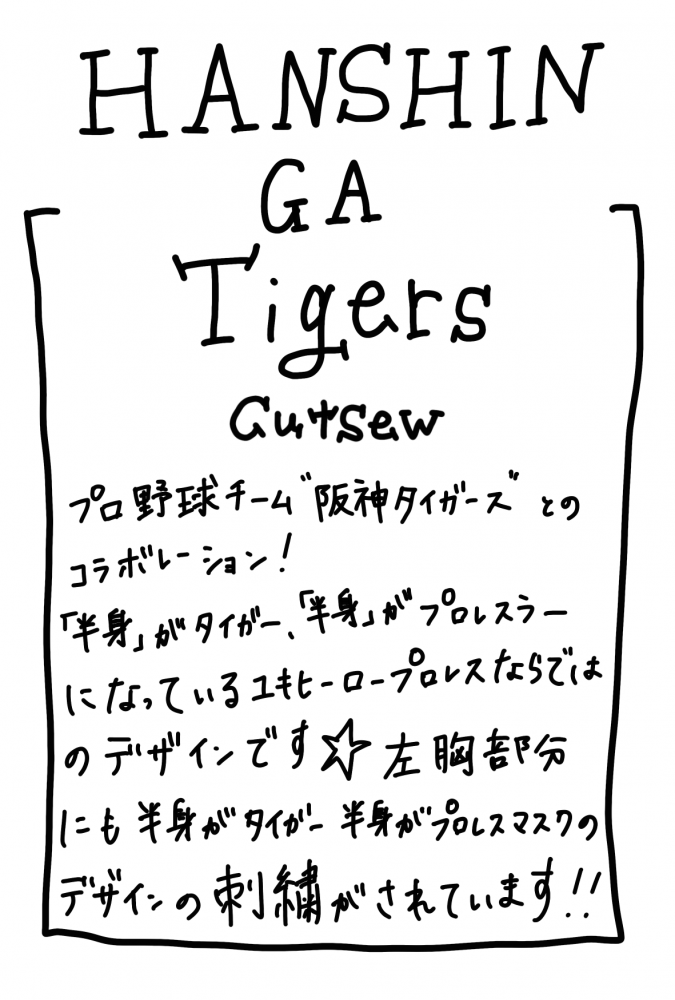 HANSHIN
GA
Tigers
Cutsew
プロ野球チーム"阪神タイガース"との
コラボレーション!
「半身」がタイガー、「半身」がプロレスラー
になっているユキヒーロープロレスならでは
のデザインです☆左胸部分
にも半身がタイガー半身がプロレスマスクの
デザインの刺繍がされています!!